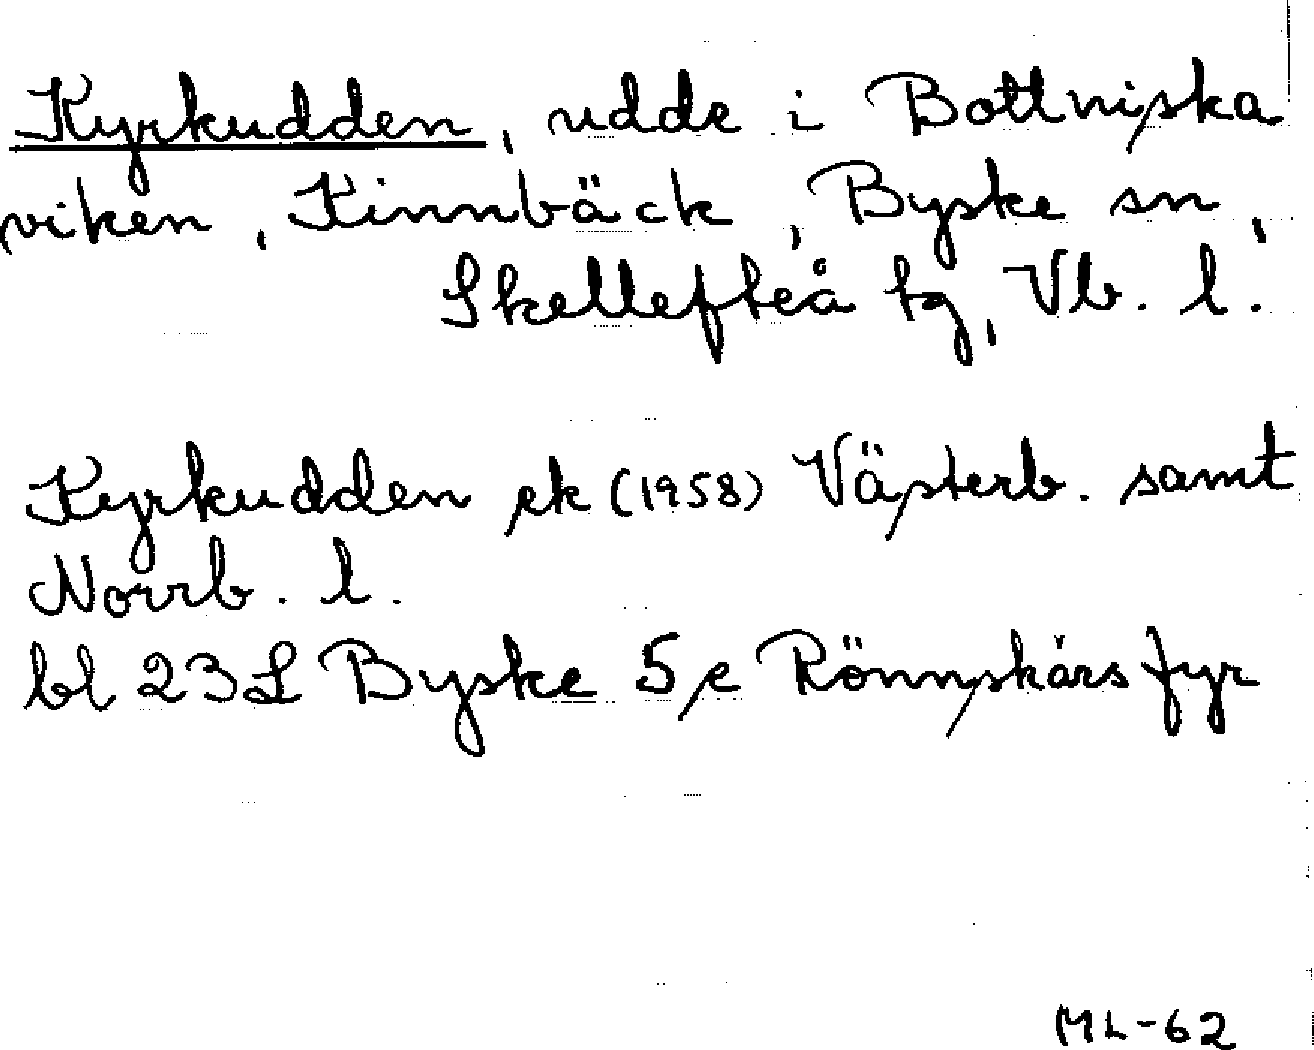 Kyrkudden, udde i Bottniska
viken, Kinnbäck, Byske sn,
Skellefteå tg, Vb. l.
Kyrkudden ek (1958) Västerb. samt
Norrb. l.
bl 23 L Byske 5 e Rönnskärs fyr
ML-62